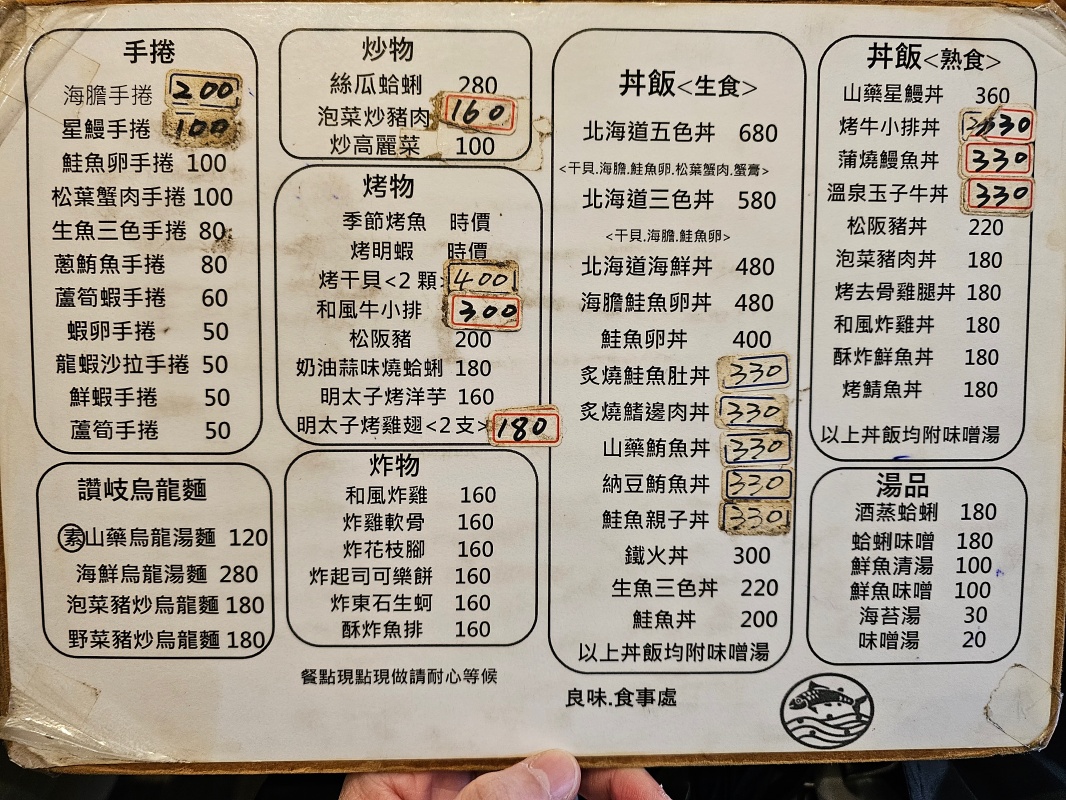 手捲
海膽手捲 200
星鰻手捲 100
鮭魚卵手捲 100
松葉蟹肉手捲 100
生魚三色手捲 80
蔥鮪魚手捲 80
蘆筍蝦手捲 60
蝦卵手捲 50
龍蝦沙拉手捲 50
鮮蝦手捲 50
蘆筍手捲 50
讚岐烏龍麵
素山藥烏龍湯麵 120
海鮮烏龍湯麵 280
泡菜豬炒烏龍麵 180
野菜豬炒烏龍麵 180
炒物
絲瓜蛤蜊 280
泡菜炒豬肉 160
炒高麗菜 100
烤物
季節烤魚 時價
烤明蝦 時價
烤干貝<2 顆> 400
和風牛小排 300
松阪豬 200
奶油蒜味燒蛤蜊 180
明太子烤洋芋 160
明太子烤雞翅<2支> 180
炸物
和風炸雞 160
炸雞軟骨 160
炸花枝腳 160
炸起司可樂餅 160
炸東石生蚵 160
酥炸魚排 160
餐點現點現做請耐心等候
丼飯<生食>
北海道五色丼 680
<干貝.海膽.鮭魚卵.松葉蟹肉.蟹膏>
北海道三色丼 580
<干貝.海膽.鮭魚卵>
北海道海鮮丼 480
海膽鮭魚卵丼 480
鮭魚卵丼 400
炙燒鮭魚肚丼 330
炙燒鰭邊肉丼 330
山藥鮪魚丼 330
納豆鮪魚丼 330
鮭魚親子丼 330
鐵火丼 300
生魚三色丼 220
鮭魚丼 200
以上丼飯均附味噌湯
良味.食事處
丼飯<熟食>
山藥星鰻丼 360
烤牛小排丼 330
蒲燒鰻魚丼 330
溫泉玉子牛丼 330
松阪豬丼 220
泡菜豬肉丼 180
烤去骨雞腿丼 180
和風炸雞丼 180
酥炸鮮魚丼 180
烤鯖魚丼 180
以上丼飯均附味噌湯
湯品
酒蒸蛤蜊 180
蛤蜊味噌 180
鮮魚清湯 100
鮮魚味噌 100
海苔湯 30
味噌湯 20